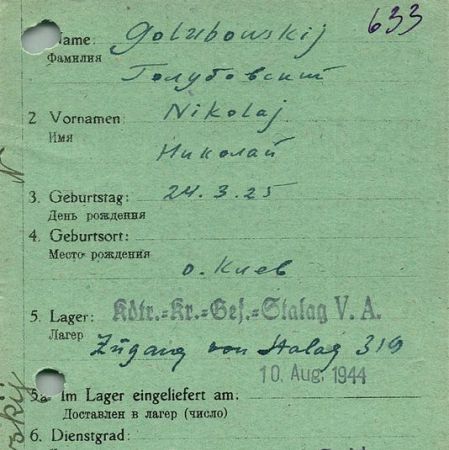 Name: Golubowskij 633
Фамилия Голубовский
2 Vornamen: Nikolaj
Имя Николай
3. Geburtstag: 24.3.25
День рождения
4. Geburtsort:
Место рождения
о. Киев
5. Lager: Kdtr.=Kr.=Gef.=Stalag V. A.
Лагерь Zugang von Stalag 319
10. Aug. 1944
5a Im Lager eingeliefert am:
Доставлен в лагер (число)
6. Dienstgrad: